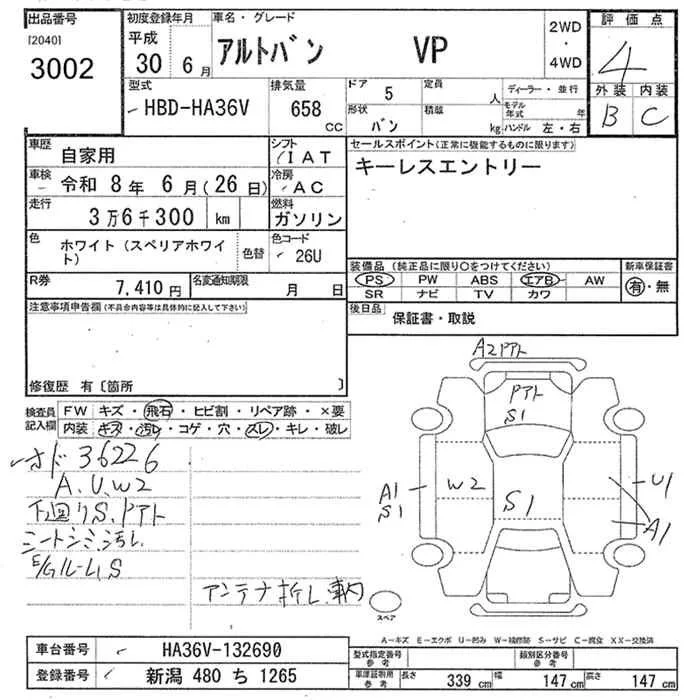 出品番号
[2040]
3002
初度登録年月
平成
30 6月
車名・グレード
アルトバン VP
2WD
・
4WD
評価点
4
外装 内装
B C
型式
HBD-HA36V
排気量
658
CC
ドア 5
形状 バン
定員 人
積載 kg
ディーラー・並行
モデル年式 年
ハンドル 左・右
車歴 自家用
シフト
IAT
車検 令和 8年 6月(26日)
冷房
AC
走行 3万6千300 km
燃料
ガソリン
色 ホワイト(スペリアホワイト)
色替
色コード
26U
R券 7,410円
名変通知期限 月 日
セールスポイント(正常に機能するものに限ります)
キーレスエントリー
装備品(純正品に限り〇をつけてください)
PS PW ABS エアB AW
SR ナビ TV カワ
新車保証書
有・無
後日品 保証書・取説
注意事項申告欄(不具合内容等は具体的に記入して下さい)
修復歴 有〔箇所 〕
検査員
記入欄
FW キズ・飛石・ヒビ割・リペア跡・×要
内装 キズ・汚レ・コゲ・穴・スレ・キレ・破レ
オド 36226
A.U.W2
下回りS.Pアト
シートシミ、汚レ
E/Gルーム S
アンテナ折レ、車内
A2Pアト
Pアト
S1
A1
S1
W2
S1
U1
A1
スペア
A―キズ E―エクボ U―凹み W―補修跡 S―サビ C―腐食 XX―交換済
車台番号 HA36V-132690
登録番号 新潟 480 ち 1265
型式指定番号
参考
類別区分番号
参考
車庫証明用
参考
長さ 339 cm 幅 147 cm 高さ 147 cm